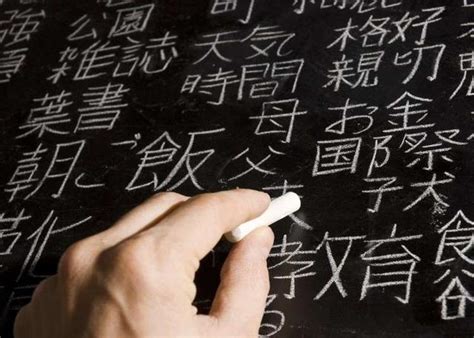 強 公園 天気 格好
雑誌 時間 親切
葉書 母 お金
朝ご飯 父 国際
子犬
化 教育 食
る